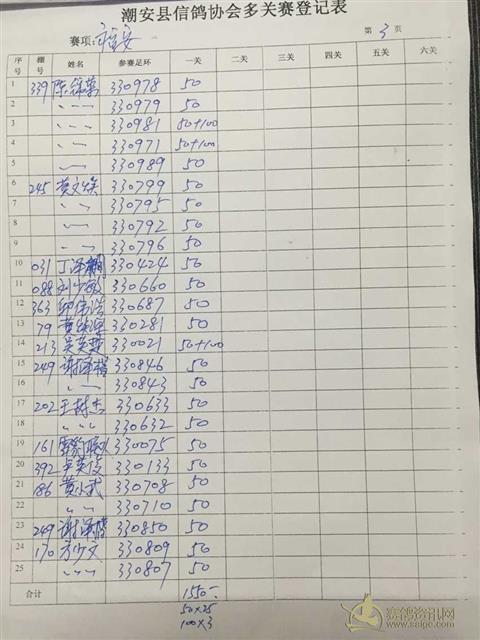 潮安县信鸽协会多关赛登记表
赛项: 福安 第 3 页
序号 棚号 姓名 参赛足环 一关 二关 三关 四关 五关 六关
1 339 陈锦 330978 50
2 330979 50
3 330981 50+100
4 330971 50+100
5 330989 50
6 245 黄文 330799 50
7 330795 50
8 330792 50
9 330796 50
10 031 丁泽鹏 330424 50
11 088 刘少 330660 50
12 363 邱伟浩 330687 50
13 79 黄 330281 50
14 213 吴英 330021 50+100
15 249 谢泽 330846 50
16 330843 50
17 202 王树杰 330633 50
18 330632 50
19 161 330075 50
20 392 卓英 330133 50
21 186 黄小武 330708 50
22 330710 50
23 249 谢泽 330850 50
24 170 方少文 330809 50
25 330807 50
合计 1550-
50×25
100×3
赛鸽资讯网
www.saige.com